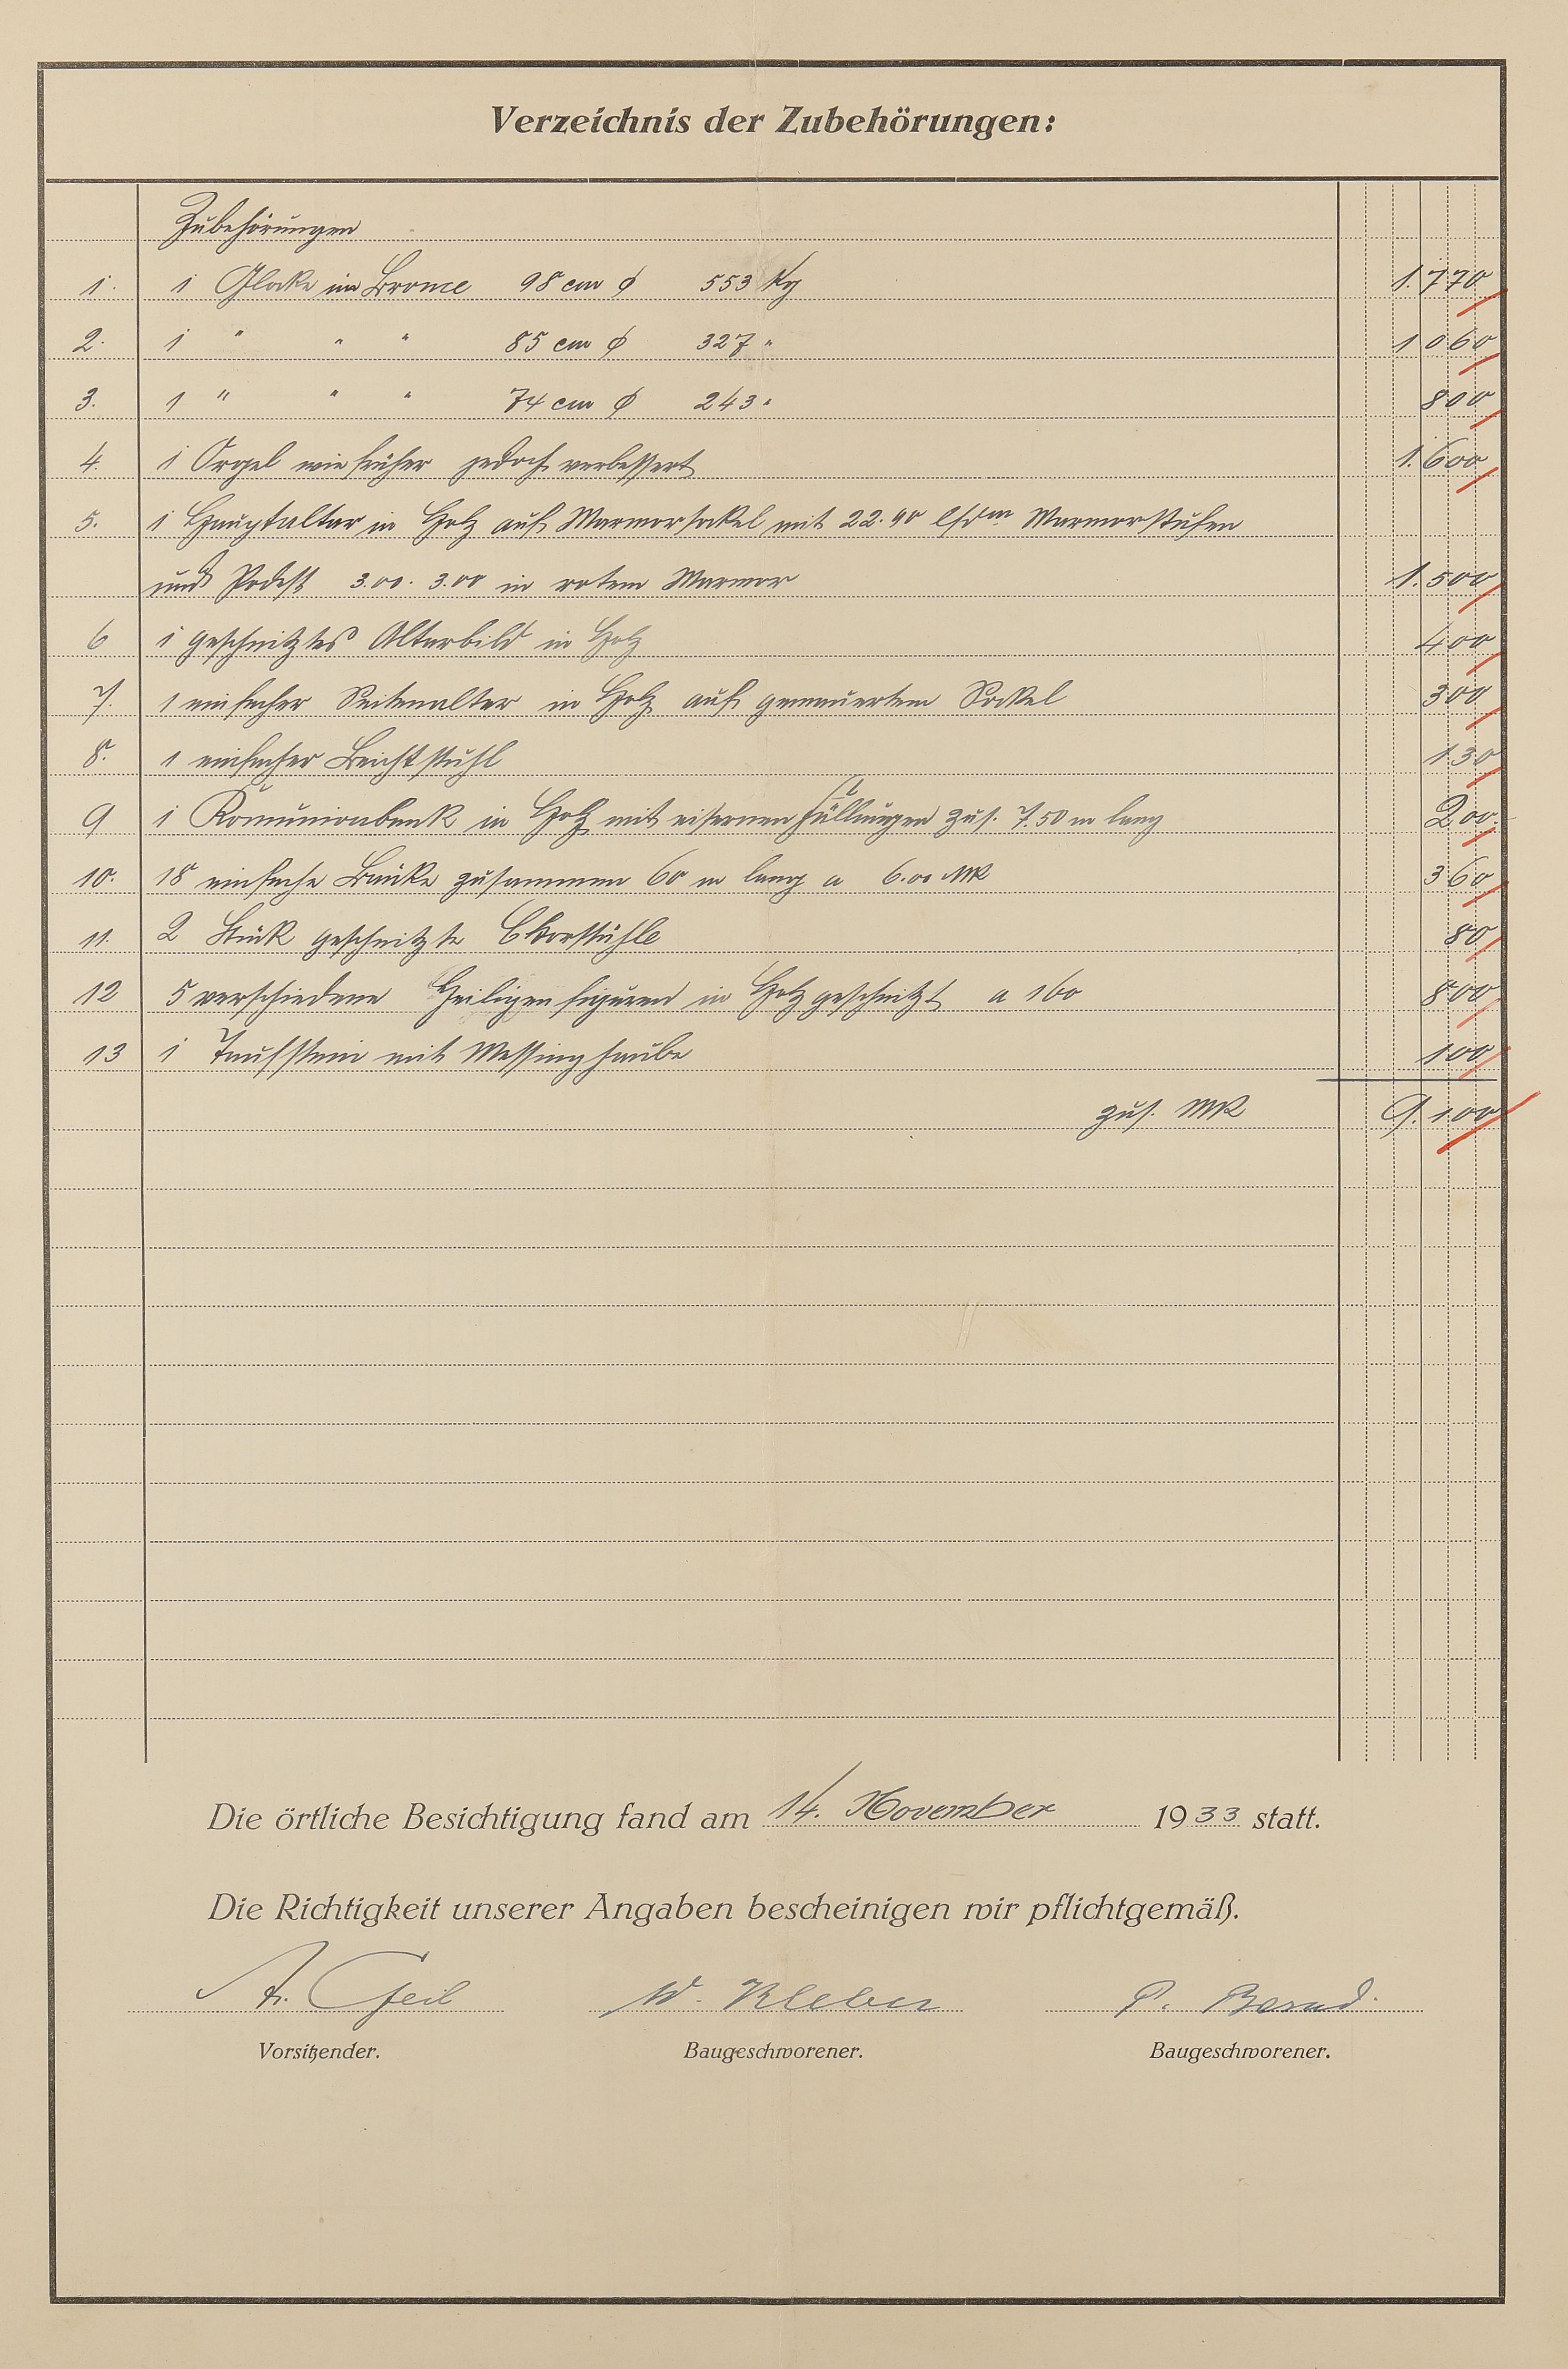 Verzeichnis der Zubehörungen:
Zubehörungen
1. 1 Glocke in Bronce 98 cm ϕ 553 Kg 1.770
2. 1 " " " 85 cm ϕ 327 " 1060
3. 1 " " " 74 cm ϕ 243 " 800
4. 1 Orgel wie früher jedoch verbessert 1.600
5. 1 Hauptaltar in Holz auf Marmorsockel mit 22.40 lfdm Marmorstufen
und Podest 3.00. 3.00 in rotem Marmor 1.500
6 1 geschnitztes Altarbild in Holz 400
7. 1 einfacher Seitenaltar in Holz auf gemauertem Sockel 300
8. 1 einfacher Beichtstuhl 130
9 1 Komunionbank in Holz mit eisernen Füllungen zus. 7.50 m lang 200
10. 18 einfache Bänke zusammen 60 m lang a 6.00 MK 360
11. 2 Stück geschnitzte Chorstühle 80
12 5 verschiedene Heiligenfiguren in Holz geschnitzt a 160 800
13 1 Taufstein mit Messinghaube 100
zus. MK 9.100
Die örtliche Besichtigung fand am 14. November 1933 statt.
Die Richtigkeit unserer Angaben bescheinigen wir pflichtgemäß.
A. Geil W. Kleber P. Bernd.
Vorsitzender. Baugeschworener. Baugeschworener.